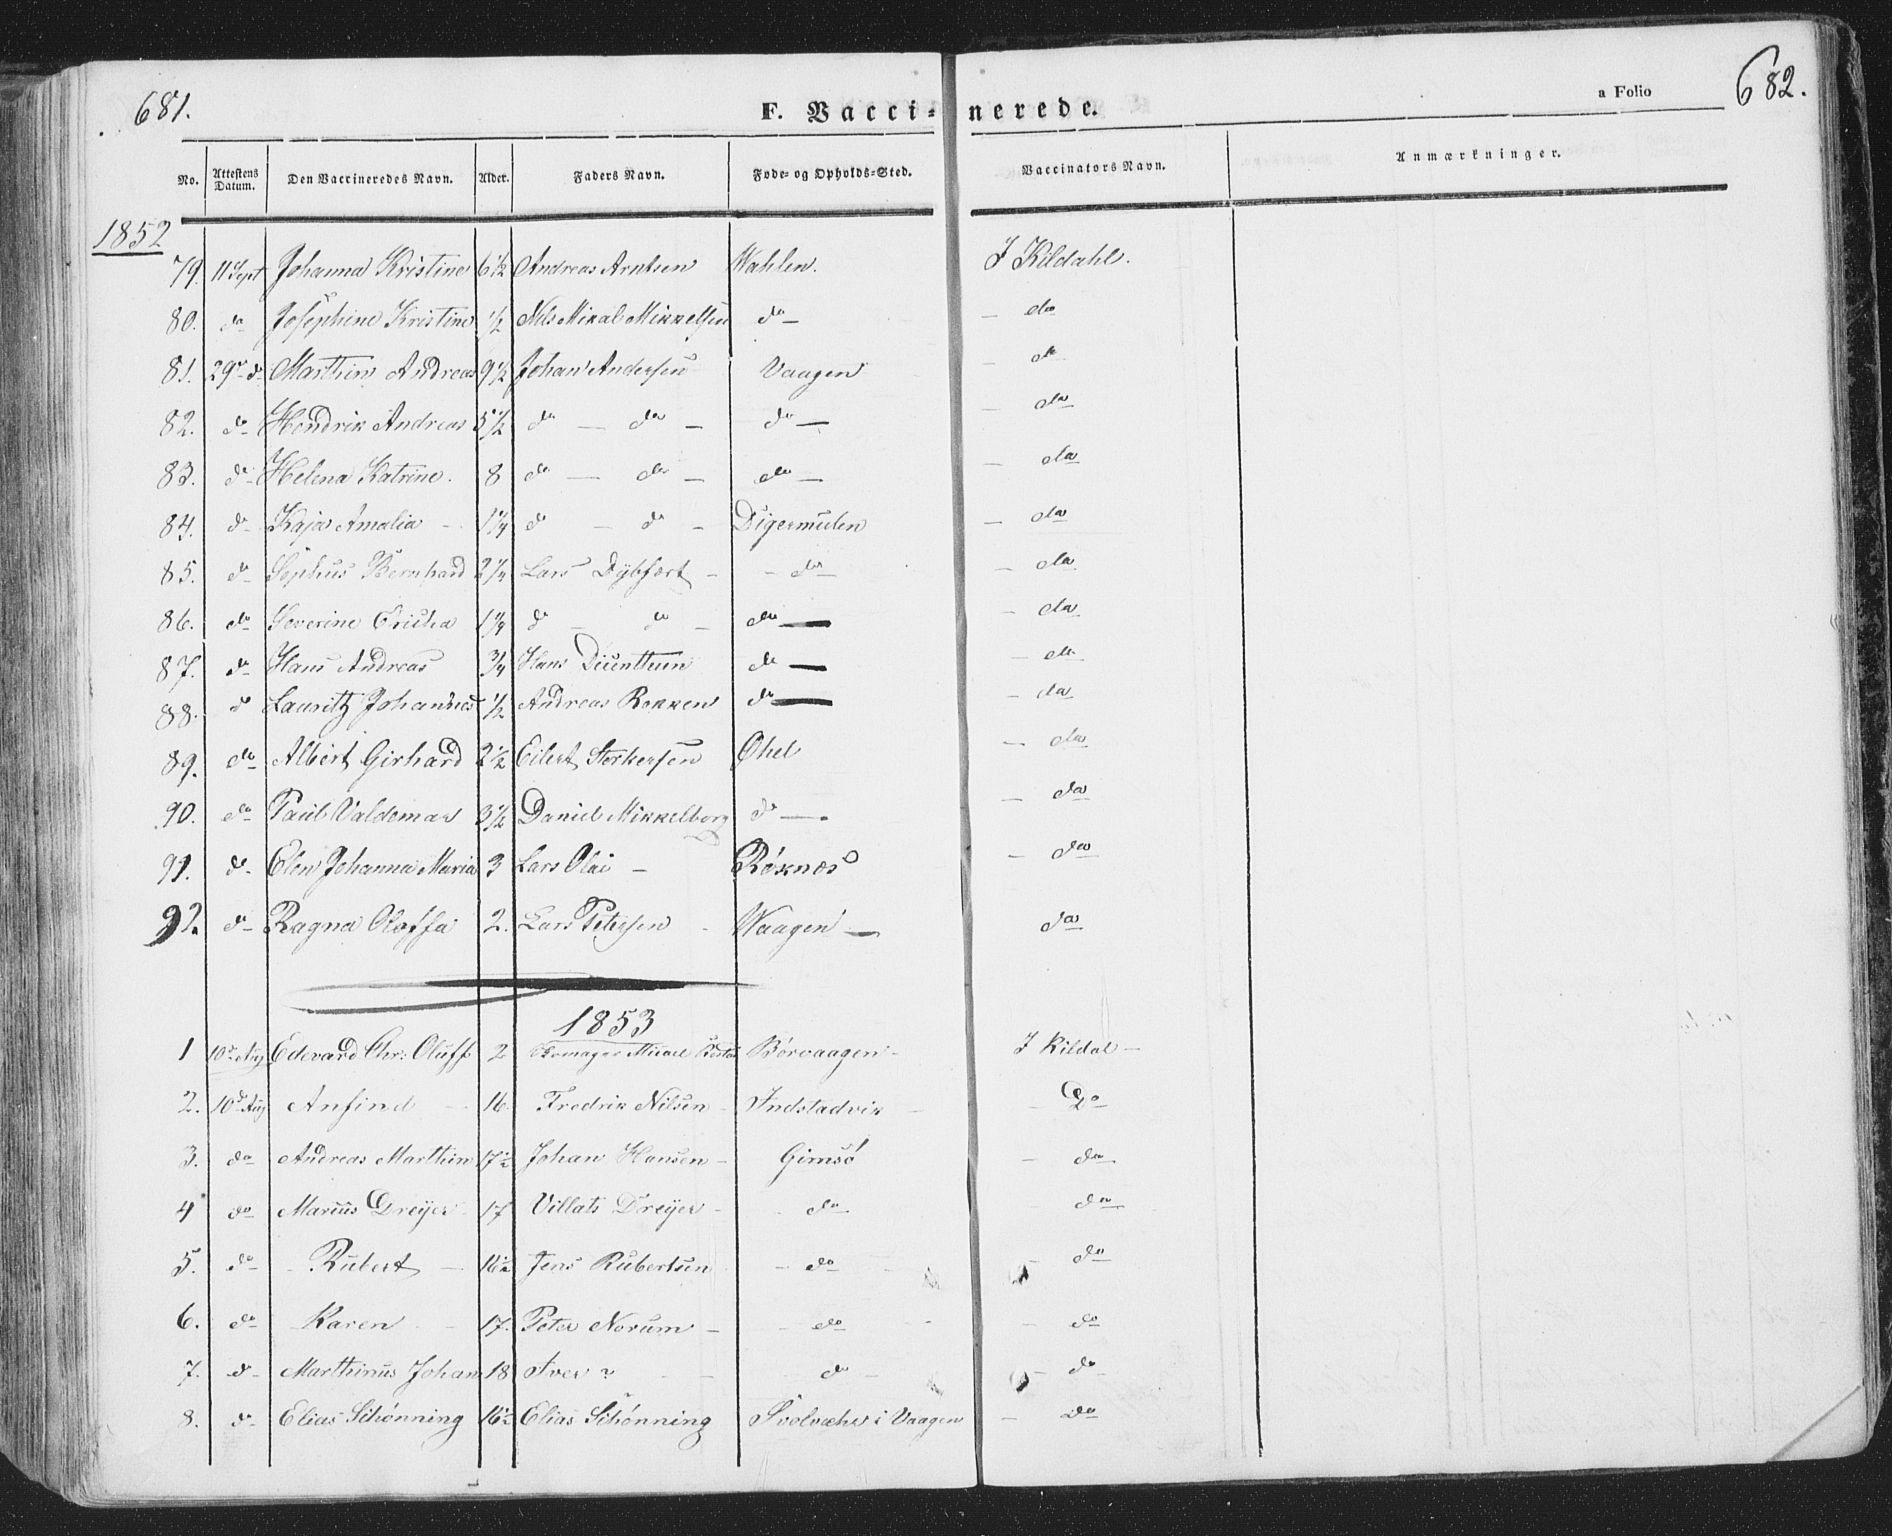 681.
F. Vaccinerede.
a Folio
682.
No. Attestens Datum. Den Vaccineredes Navn. Alder. Faders Navn. Føde- og Opholds-Sted. Vaccinators Navn. Anmærkninger.
1852
79. 11 Sept Johanna Kristine 6½ Andreas Arntsen Wahlen. J Kildahl.
80. do Josephine Kristine ½ Nils Mikal Mikkelsen do – – do
81. 29de do Marthin Andreas 9½ Johan Andersen Vaagen – do
82. do Hendrik Andreas 5½ do – do – do – – do
83. do Helena Katrine. 8 do – do – do – – do
84. do Kaja Amalia – 1¼ do – do – Digermulen – do
85. do Sophus Bernhard 2¼ Lars Dybfort – – do – do
86. do Severine 1¼ do – do – do – – do
87. do Hans Andreas ¾ Hans do – – do
88. do Lauritz Johannes ½ Andreas Rokken do – – do
89. do Albert Girhard 2½ Eilert Sterkersen Øhel – do
90. do Paul Valdemar 3½ Daniel Mikkelborg do – – do
91. do Elen Johanna Maria 3 Lars Olai – Røknæs – do
92. do Ragna Oloffa 2. Lars Petersen – Waagen – do
1853
1 10de Aug Edevard Chr: Oluff 2 Børvaagen – J Kildal –
2. 10de Aug Anfind – 16. Fredrik Nilsen – Indstadvik – Do
3. do Andreas Marthin 17½ Johan Hansen – Gimsø – do
4 do Marius Dreyer – 17 Villats Dreyer – do – do
5. do – Rubert – 16½ Jens Rubertsen – do – – do
6. do – Karen – 17. Peter Norum – – do – – do
7. do – Marthinus Johan 18 Iver ? – do – – do
8. do – Elias Schønning 16½ Elias Schønning Svolvæhr i Vaagen – do